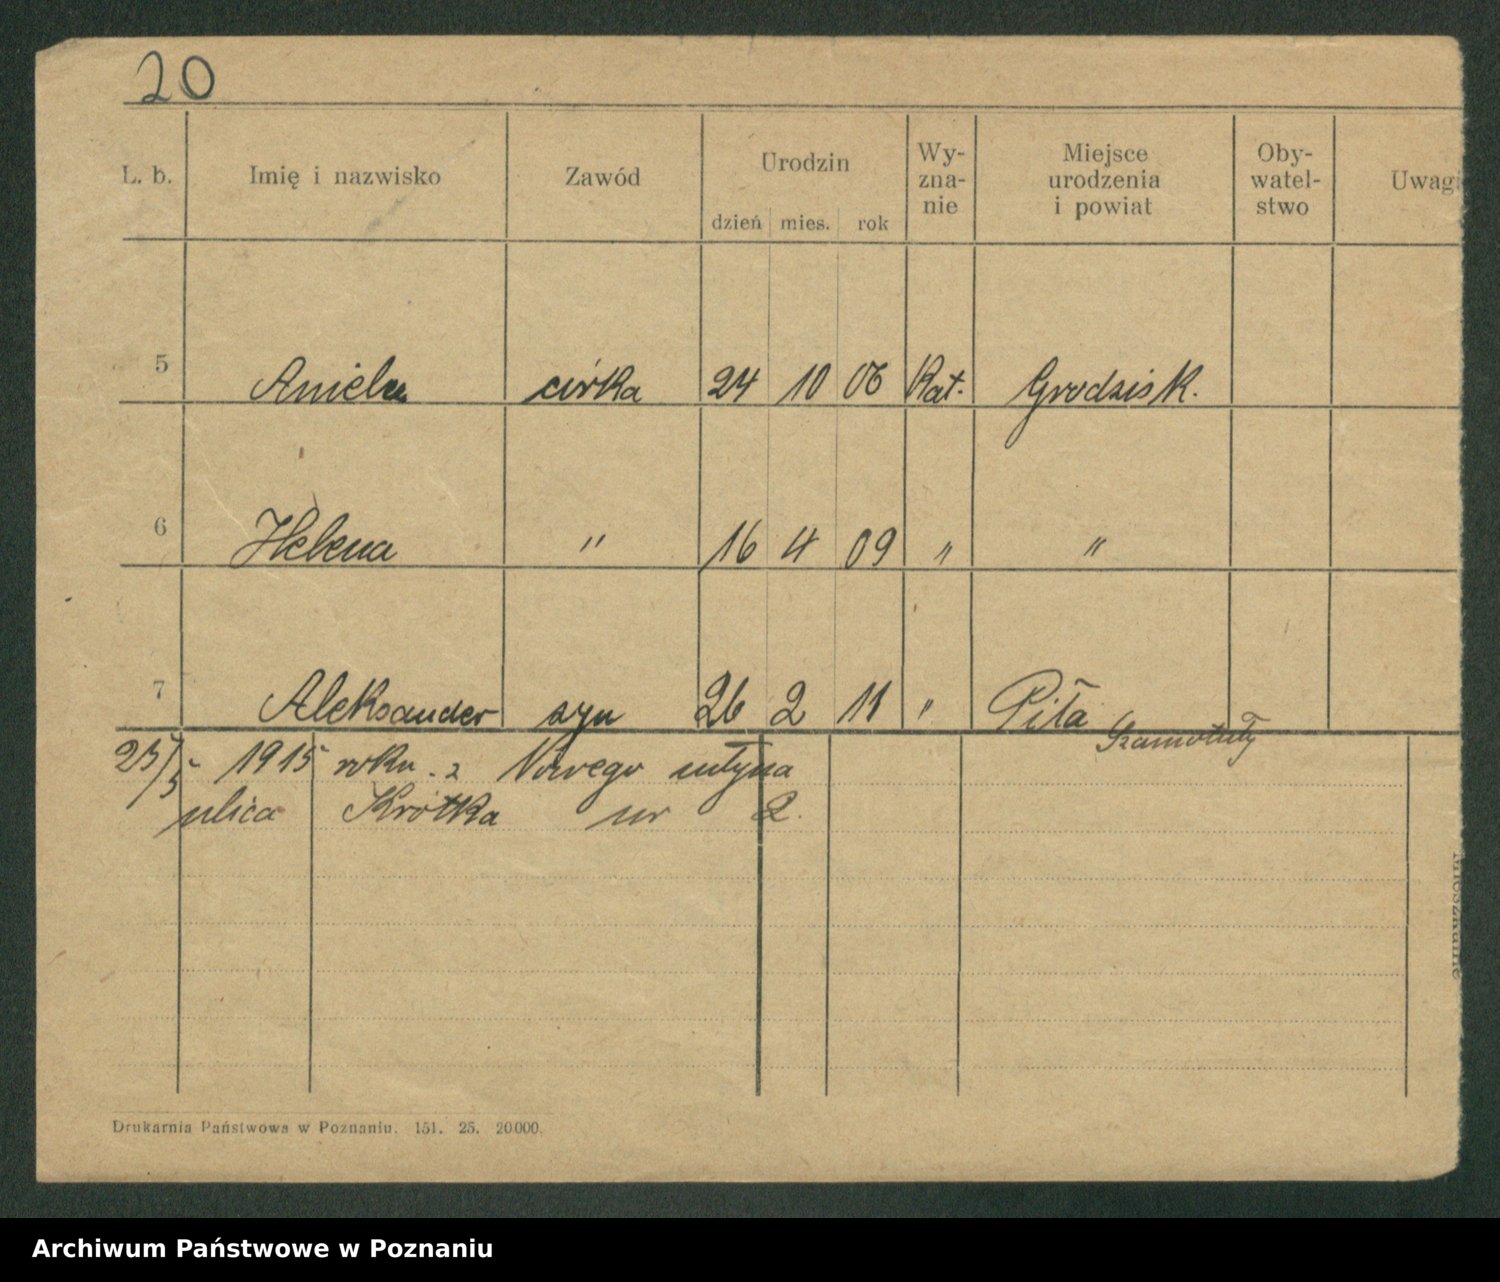 20
L. b. Imię i nazwisko Zawód Urodzin dzień mies. rok Wy-zna-nie Miejsce urodzenia i powiat Oby-watel-stwo Uwagi
5 Aniela córka 24 10 06 Kat. Grodzisk.
6 Helena " 16 4 09 " "
7 Aleksander syn 26 2 11 " Piła Szamotuły
23/5 1915 roku. z Nowego młyna
ulica Krótka nr 2.
Mieszkanie
Drukarnia Państwowa w Poznaniu. 151. 25. 20000.
Archiwum Państwowe w Poznaniu